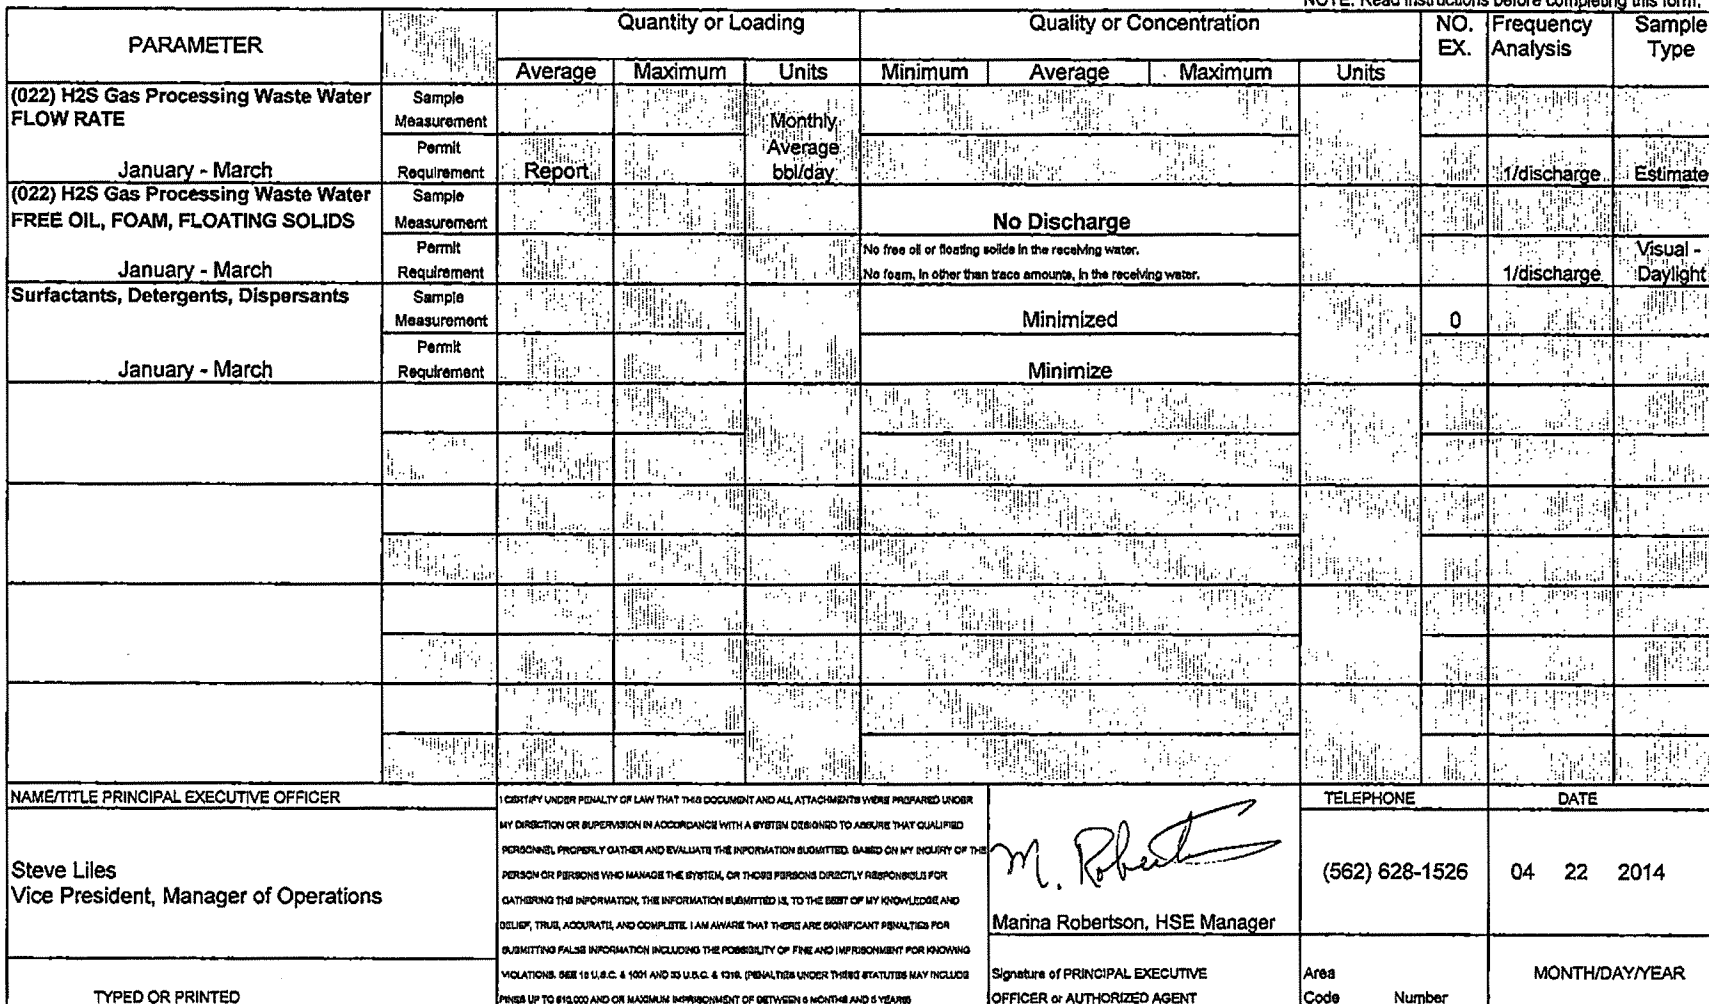 NOTE: Read instructions before completing this form.
PARAMETER Quantity or Loading Quality or Concentration NO. EX. Frequency Analysis Sample Type
Average Maximum Units Minimum Average Maximum Units
(022) H2S Gas Processing Waste Water
FLOW RATE
January - March
Sample
Measurement
Permit
Requirement
Report
Monthly
Average
bbl/day
1/discharge
Estimate
(022) H2S Gas Processing Waste Water
FREE OIL, FOAM, FLOATING SOLIDS
January - March
Sample
Measurement
No Discharge
Permit
Requirement
No free oil or floating solids in the receiving water.
No foam, in other than trace amounts, in the receiving water.
1/discharge
Visual -
Daylight
Surfactants, Detergents, Dispersants
January - March
Sample
Measurement
Minimized
0
Permit
Requirement
Minimize
NAME/TITLE PRINCIPAL EXECUTIVE OFFICER
Steve Liles
Vice President, Manager of Operations
TYPED OR PRINTED
I CERTIFY UNDER PENALTY OF LAW THAT THIS DOCUMENT AND ALL ATTACHMENTS WERE PREPARED UNDER
MY DIRECTION OR SUPERVISION IN ACCORDANCE WITH A SYSTEM DESIGNED TO ASSURE THAT QUALIFIED
PERSONNEL PROPERLY GATHER AND EVALUATE THE INFORMATION SUBMITTED. BASED ON MY INQUIRY OF THE
PERSON OR PERSONS WHO MANAGE THE SYSTEM, OR THOSE PERSONS DIRECTLY RESPONSIBLE FOR
GATHERING THE INFORMATION, THE INFORMATION SUBMITTED IS, TO THE BEST OF MY KNOWLEDGE AND
BELIEF, TRUE, ACCURATE, AND COMPLETE. I AM AWARE THAT THERE ARE SIGNIFICANT PENALTIES FOR
SUBMITTING FALSE INFORMATION INCLUDING THE POSSIBILITY OF FINE AND IMPRISONMENT FOR KNOWING
VIOLATIONS. SEE 18 U.S.C. & 1001 AND 33 U.S.C. & 1319. (PENALTIES UNDER THESE STATUTES MAY INCLUDE
FINES UP TO $10,000 AND OR MAXIMUM IMPRISONMENT OF BETWEEN 6 MONTHS AND 5 YEARS)
M. Robertson
Marina Robertson, HSE Manager
Signature of PRINCIPAL EXECUTIVE
OFFICER or AUTHORIZED AGENT
TELEPHONE
(562) 628-1526
Area
Code Number
DATE
04 22 2014
MONTH/DAY/YEAR